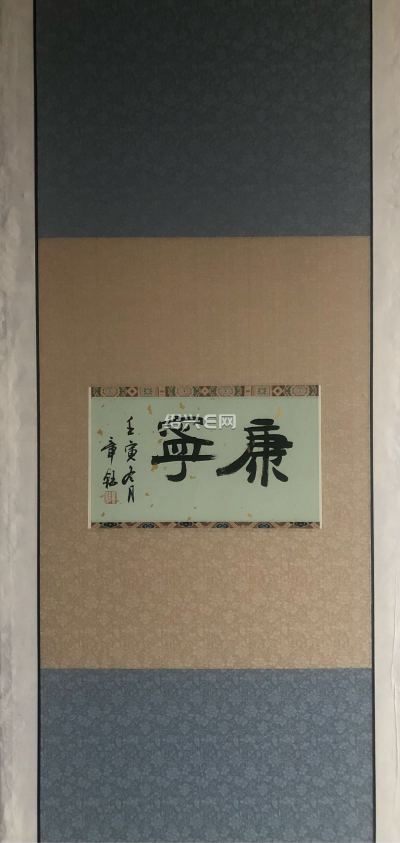 康寧
壬寅冬月
章鈺
绍兴E网